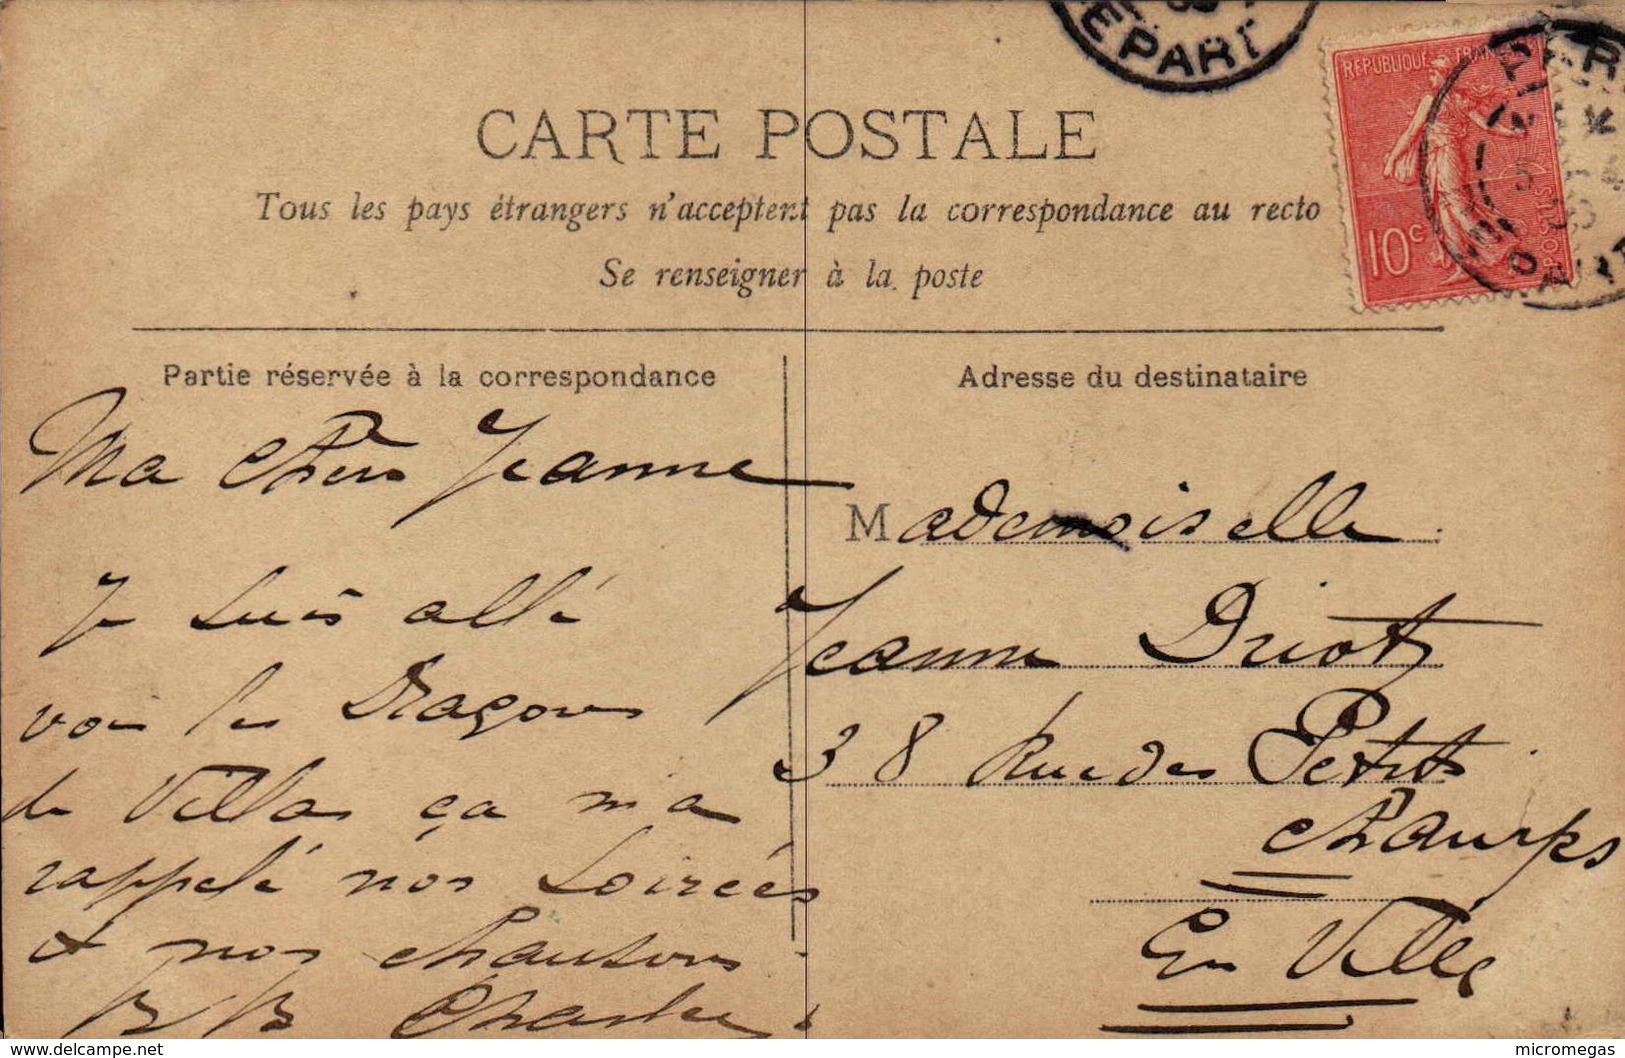 EPART
REPUBLIQUE FRANÇAISE
10c
POSTES
CARTE POSTALE
Tous les pays étrangers n'acceptent pas la correspondance au recto
Se renseigner à la poste
Partie réservée à la correspondance
Ma chère Jeanne
Je suis allé
voir les Dragons
de Villas ça m'a
rappelé nos soirées
et nos chansons
BB Charles
Adresse du destinataire
Mademoiselle
Jeanne Driot
38 Rue des Petits
champs
En Ville
www.delcampe.net
micromegas